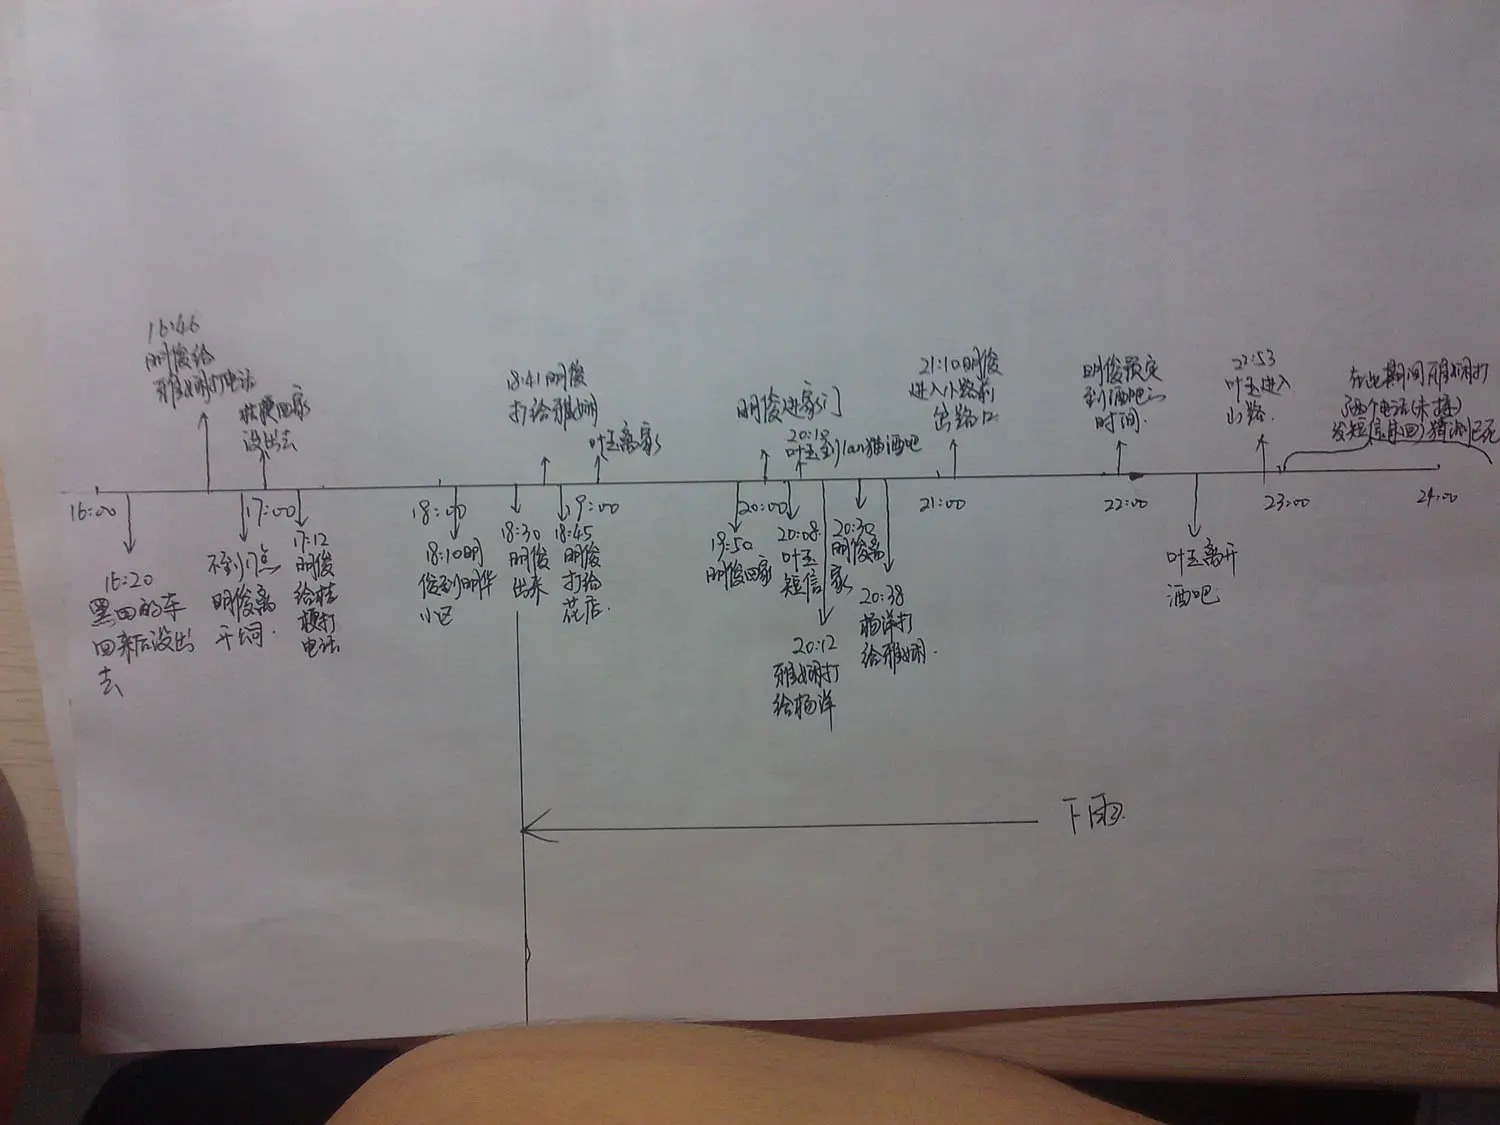 16:46
明俊给
雅娴打电话
桂梗回家
没出去
18:41明俊
打给雅娴
叶玉离家
明俊进家门
20:10
叶玉到lan猫酒吧
21:10明俊
进入小路前
岔路口
明俊预定
到酒吧的
时间
22:53
叶玉进入
小路
在此期间雅娴打
了两个电话(未接)
发短信(未回)猜测已死
16:00
17:00
18:00
19:00
20:00
21:00
22:00
23:00
24:00
16:20
黑田的车
回来后没出
去
不到17点
明俊离
17:12
明俊
给桂
梗打
电话
18:10明
俊到明华
小区
18:30
明俊
出来
18:45
明俊
打给
花店
19:50
明俊回家
20:08
叶玉
短信
20:12
雅娴打
给杨洋
20:30
明俊离
家
20:38
杨洋打
给雅娴
叶玉离开
酒吧
下雨